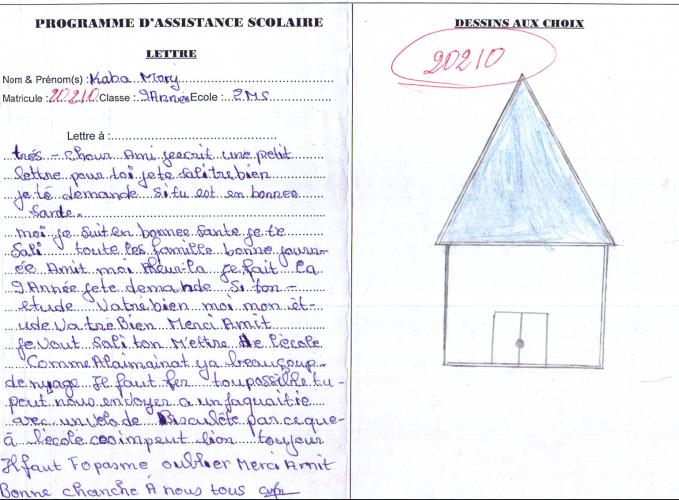 PROGRAMME D'ASSISTANCE SCOLAIRE
LETTRE
Nom & Prénom(s) : Kaba Mory
Matricule : 20210 Classe : 9Année Ecole : EMS
Lettre à :
très - chour Ami jescrit une petit
lettre pour toi je te sali tre bien
je te demande si tu est en bonnee
Sante.
moi je suit en bonnee sante je te
Sali toute les famille bonne journ-
ée Amit moi la je fait la
9Année je te demande Si ton -
etude Va tre bien moi mon ét-
ude Va tre Bien Merci Amit
je Vout Sali ton Mettre de l'école
Comme ya beaucoup
de nyage Il faut fer tou possible tu -
peut nous envoyer a un
avec un velo de par ce que -
à l'école toujour
Il faut To pasme oublier Merci Amit
Bonne chanche À nous tous
DESSINS AUX CHOIX
20210